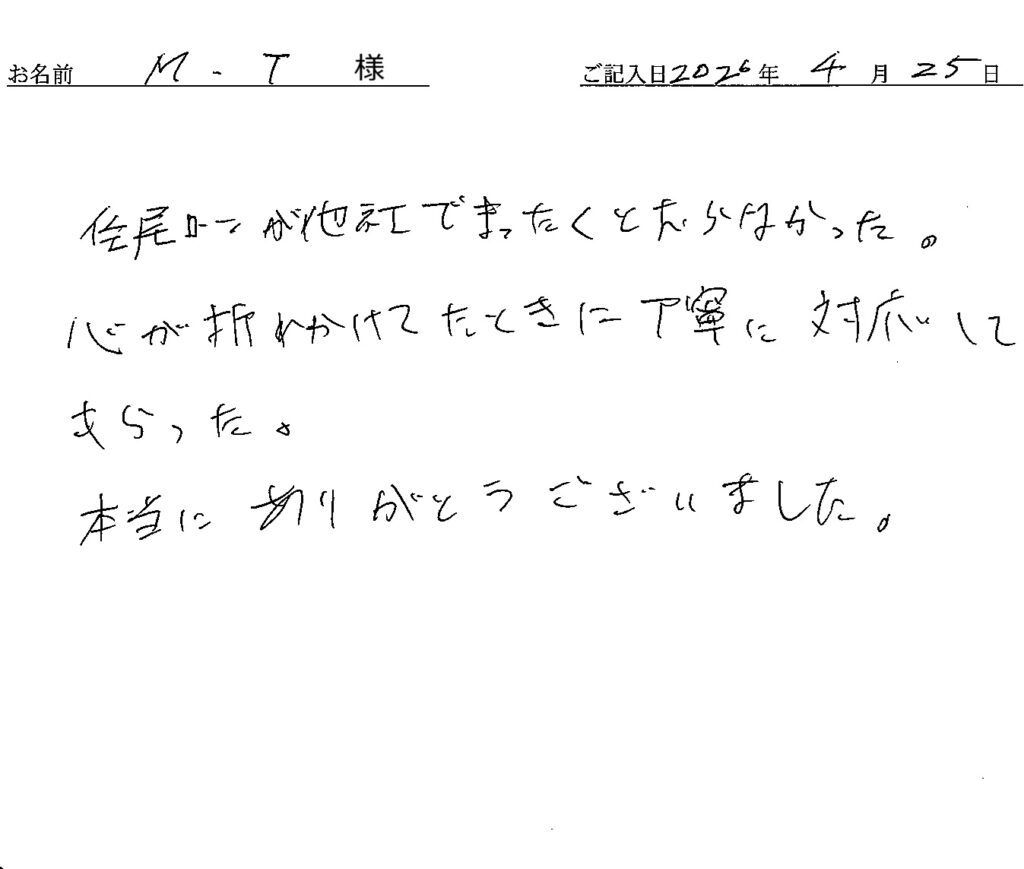 お名前 M-T 様 ご記入日2026年 4月25日
住居ローンが他社でまったくとおらなかった。
心が折れかけてたときに丁寧に対応して
もらった。
本当にありがとうございました。